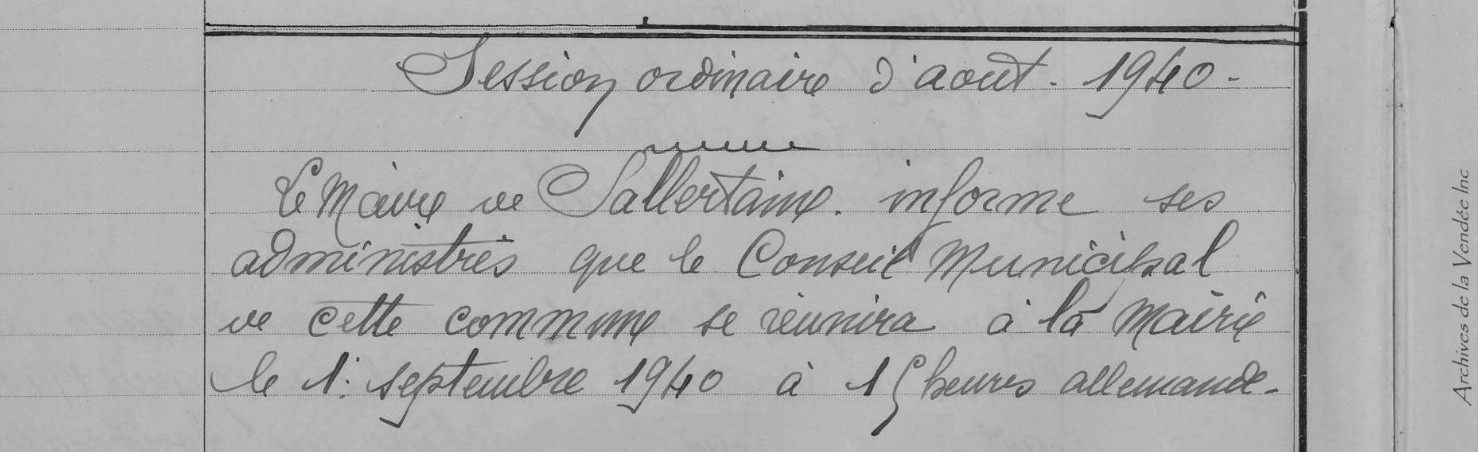 Session ordinaire d'aout. 1940-
Le Maire de Sallertaine. informe ses
administrés que le Conseil Municipal
de cette commune se réunira à la Mairie
le 1: septembre 1940 à 15 heures allemande-
Archives de la Vendée Inc